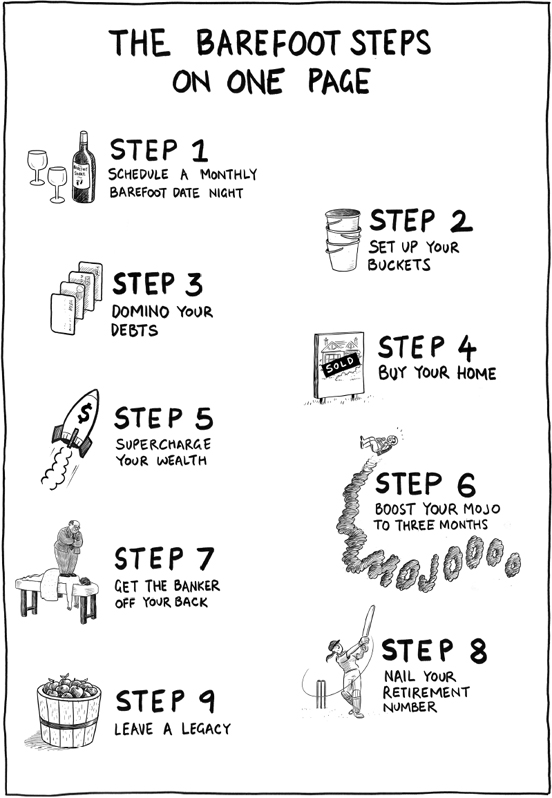 THE BAREFOOT STEPS
ON ONE PAGE
STEP 1
SCHEDULE A MONTHLY
BAREFOOT DATE NIGHT
STEP 2
SET UP YOUR
BUCKETS
STEP 3
DOMINO YOUR
DEBTS
STEP 4
BUY YOUR HOME
SOLD
STEP 5
SUPERCHARGE
YOUR WEALTH
$
STEP 6
BOOST YOUR MOJO
TO THREE MONTHS
MOJOOOO
STEP 7
GET THE BANKER
OFF YOUR BACK
STEP 8
NAIL YOUR
RETIREMENT
NUMBER
STEP 9
LEAVE A LEGACY